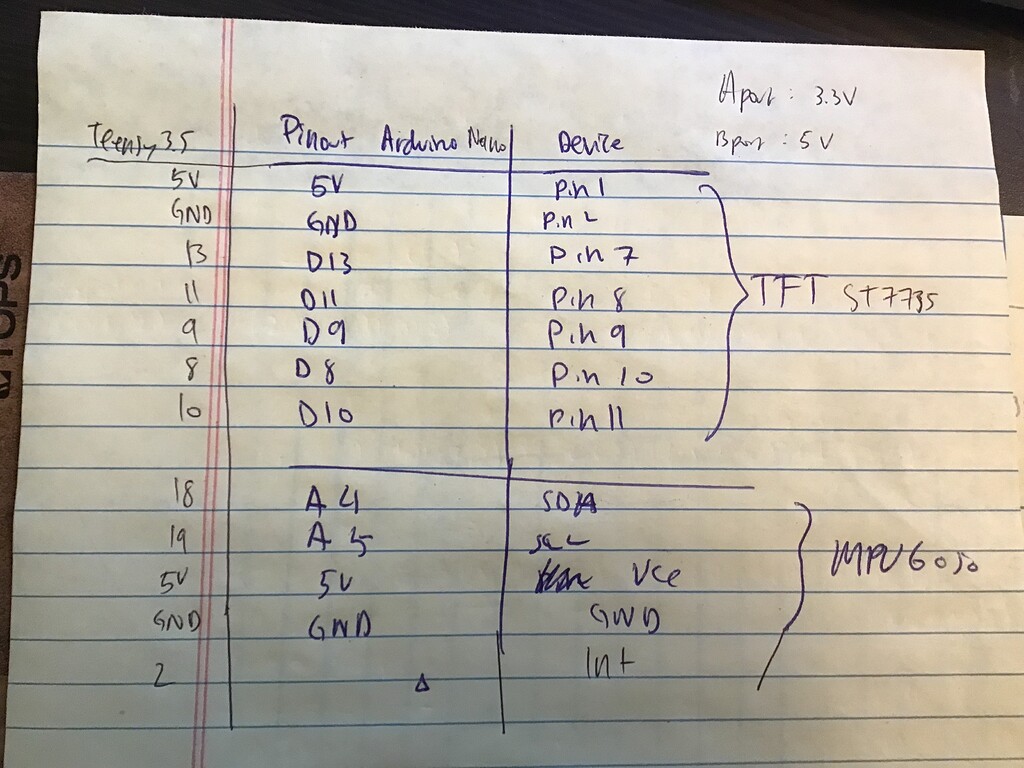 A port : 3.3V
Teensy 3.5 Pinout Arduino Nano Device B port : 5V
5V 5V Pin 1
GND GND Pin 2
13 D13 Pin 7
11 D11 Pin 8 TFT ST7735
9 D9 Pin 9
8 D8 Pin 10
10 D10 Pin 11
18 A4 SDA
19 A5 SCL
5V 5V Vcc MPU6050
GND GND GND
2 Int
TOPS